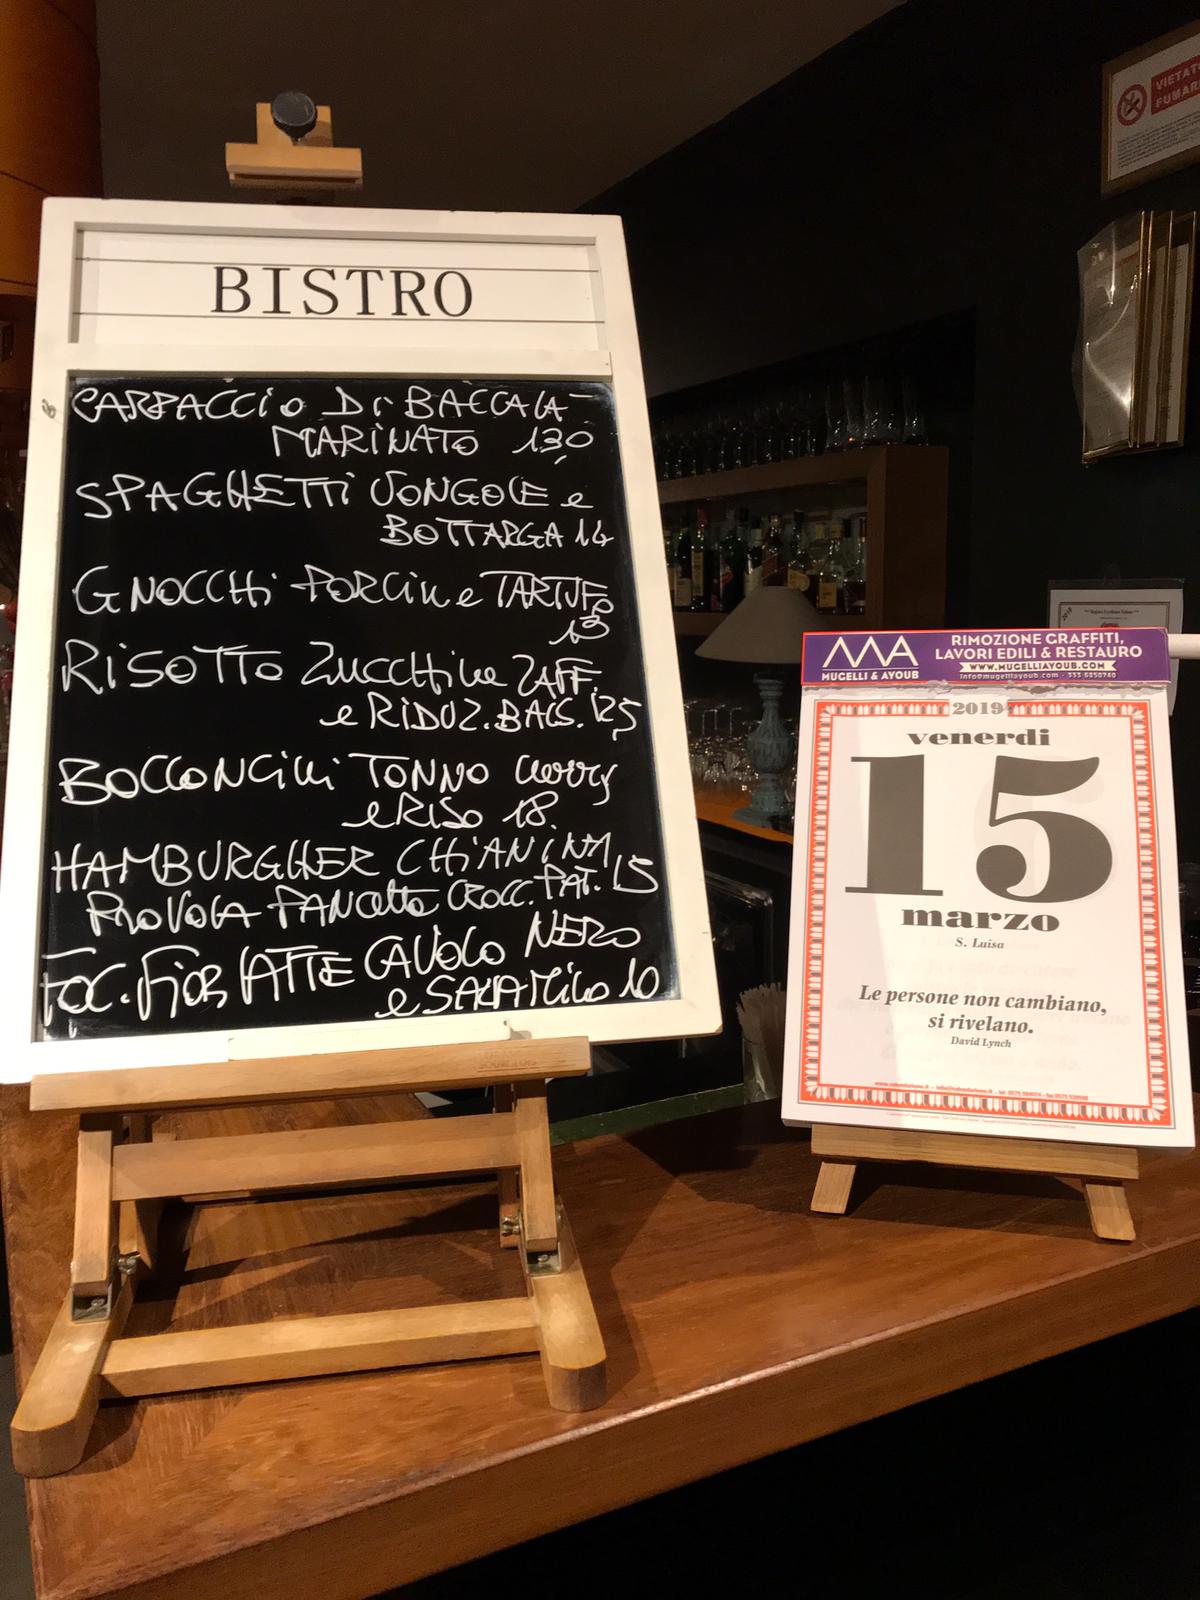 BISTRO
CARPACCIO DI BACCALA
MARINATO 13,0
SPAGHETTI VONGOLE e
BOTTARGA 14
GNOCCHI PORCINI e TARTUFO
13
RISOTTO ZUCCHINE ZAFF.
e RIDUZ. BALS. 12,5
BOCCONCINI TONNO CURRY
e RISO 18.
HAMBURGHER CHIANINA
PROVOLA PANCETTA CROCC. PAT. 15
FOC. FIOR LATTE CAVOLO NERO
e SALAMINO 10
VIETATO
FUMARE
MUGELLI & AYOUB
RIMOZIONE GRAFFITI,
LAVORI EDILI & RESTAURO
WWW.MUGELLIAYOUB.COM
info@mugelliayoub.com - 333 6850740
2019
venerdi
15
marzo
S. Luisa
Le persone non cambiano,
si rivelano.
David Lynch